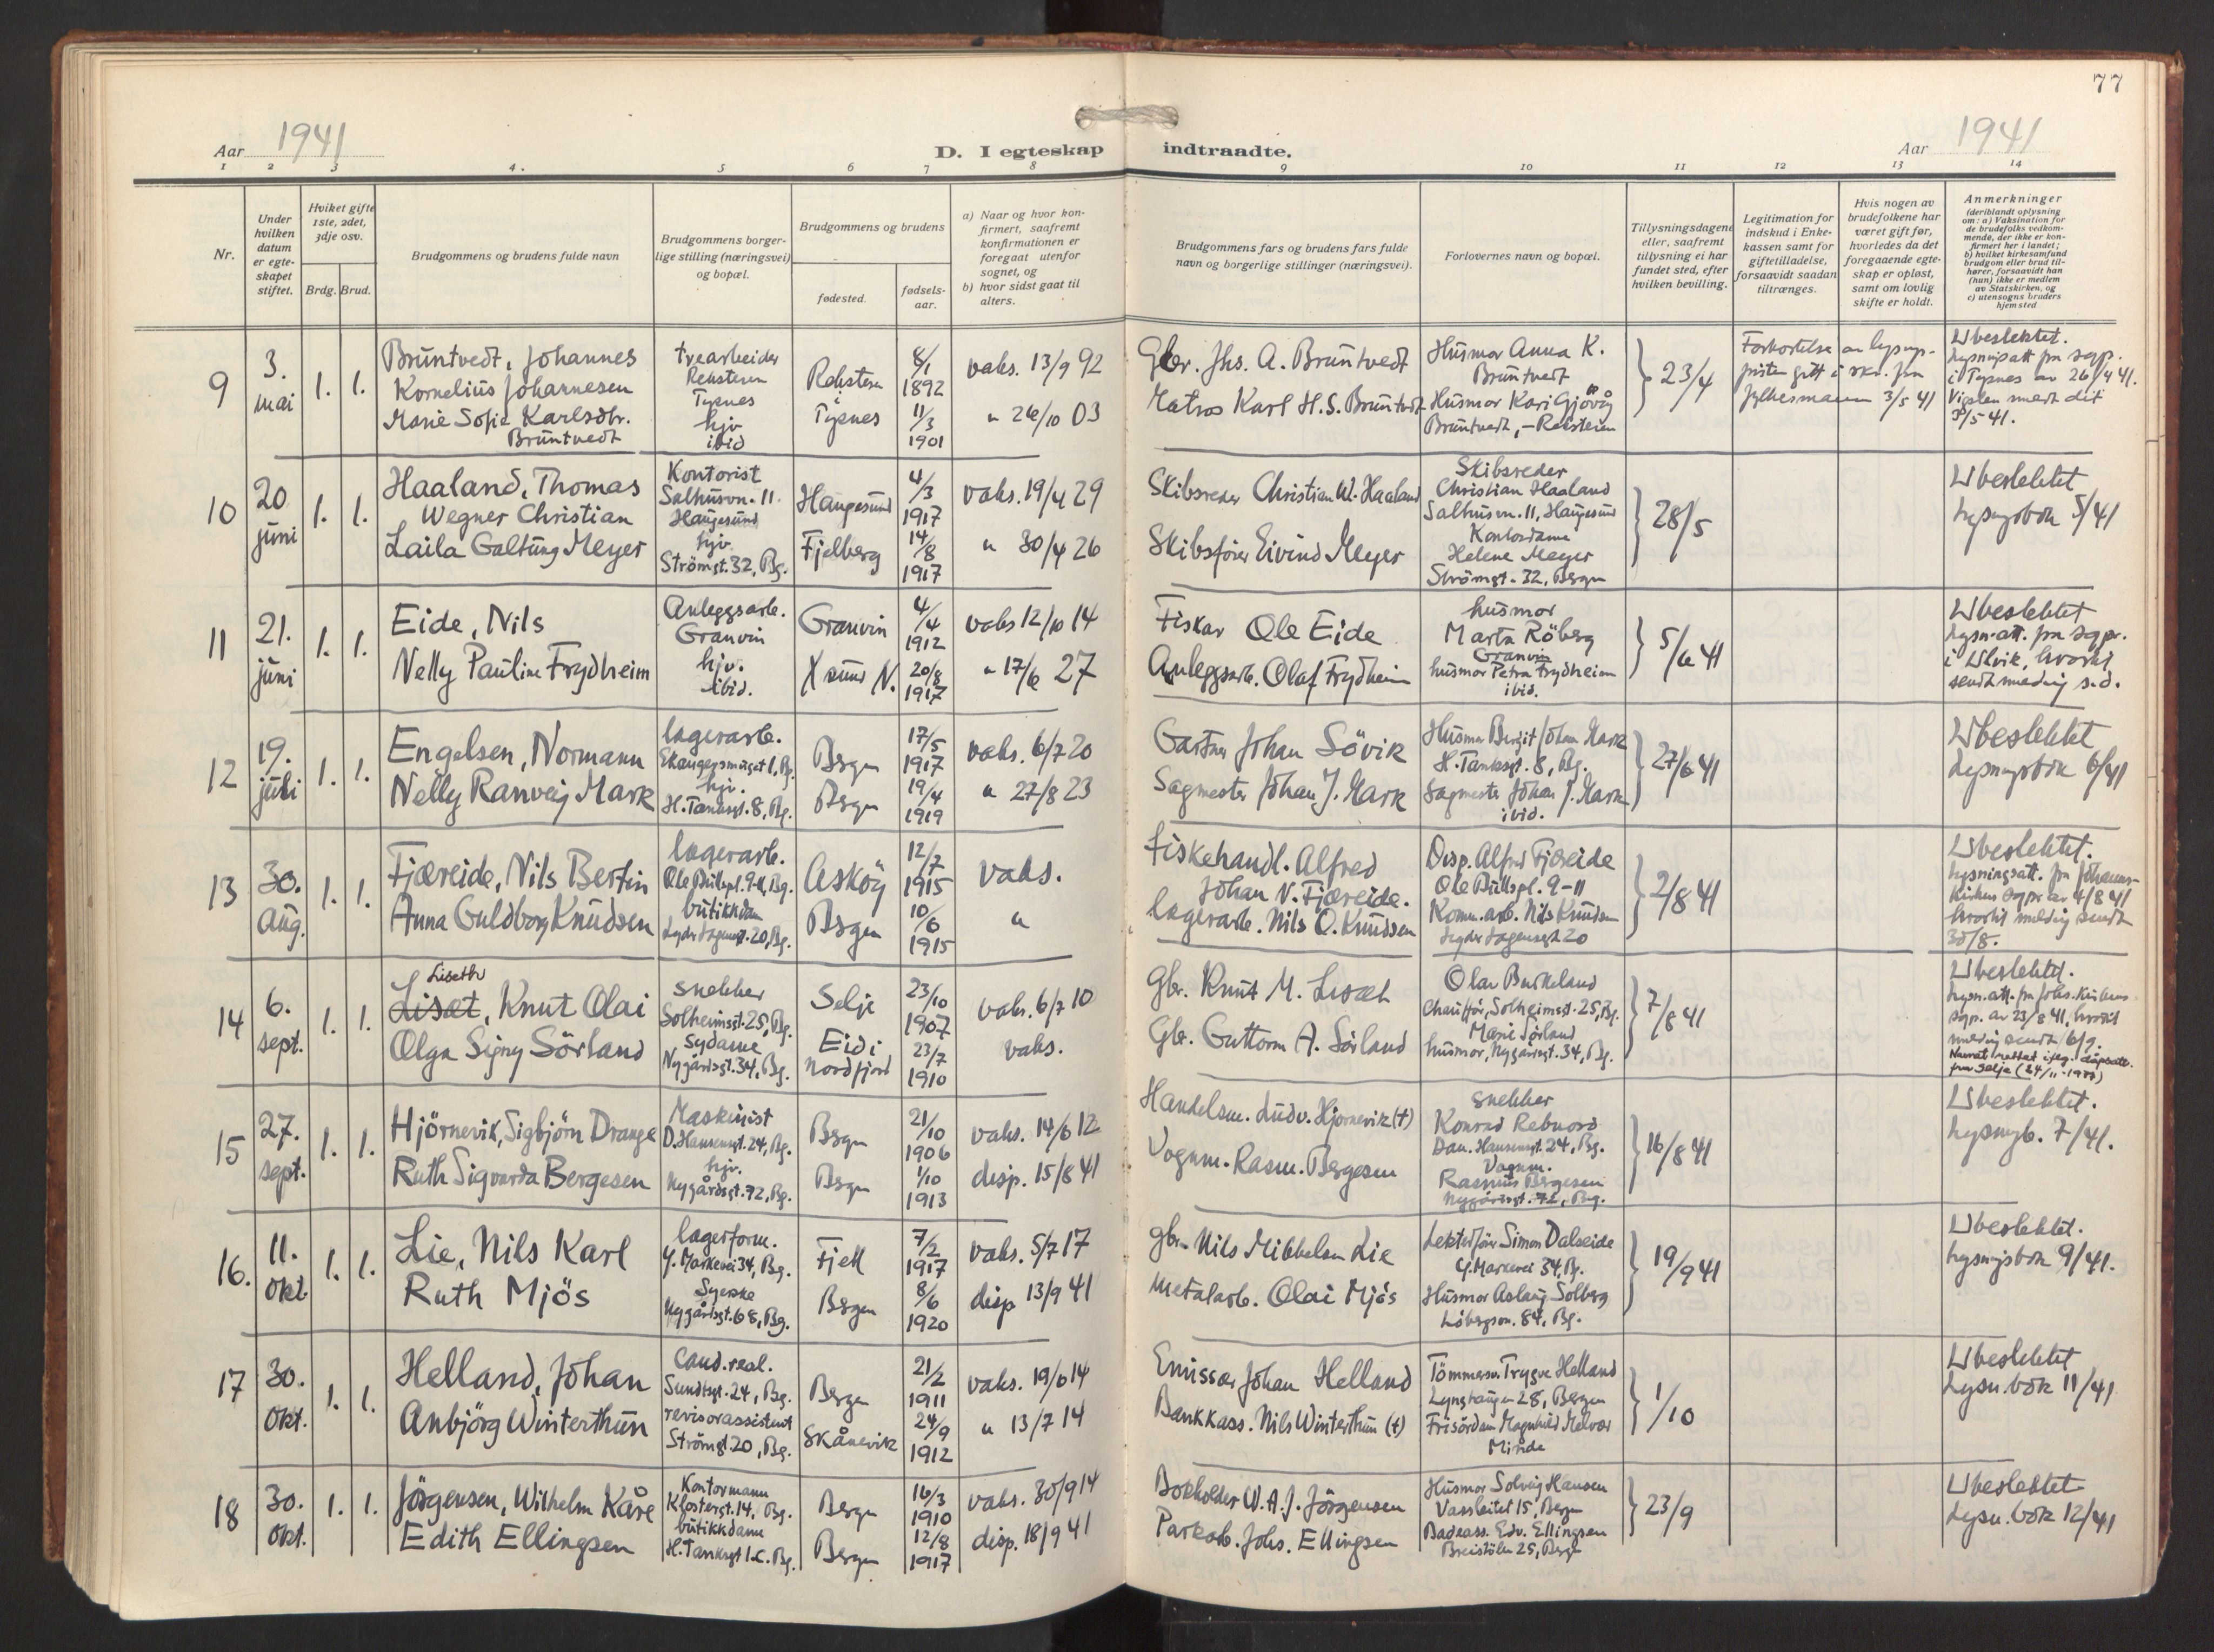 77
Aar 1941
D. I egteskap indtraadte.
Aar 1941
1 2 3 4. 5 6 7 8 9 10 11 12 13 14
Nr.
Under hvilken datum er egteskapet stiftet.
Hviket gifte 1ste, 2det, 3dje osv.
Brdg. Brud.
Brudgommens og brudens fulde navn
Brudgommens borgerlige stilling (næringsvei) og bopæl.
Brudgommens og brudens
fødested.
fødselsaar.
a) Naar og hvor konfirmert, saafremt konfirmationen er foregaat utenfor sognet, og
b) hvor sidst gaat til alters.
Brudgommens fars og brudens fars fulde navn og borgerlige stillinger (næringsvei).
Forlovernes navn og bopæl.
Tillysningsdagene eller, saafremt tillysning ei har fundet sted, efter hvilken bevilling.
Legitimation for indskud i Enkekassen samt for giftetilladelse, forsaavidt saadan tiltrænges.
Hvis nogen av brudefolkene har været gift før, hvorledes da det foregaaende egteskap er opløst, samt om lovlig skifte er holdt.
Anmerkninger
(deriblandt oplysning om: a) Vaksination for de brudefolks vedkommende, der ikke er konfirmert her i landet; b) hvilket kirkesamfund brudgom eller brud tilhører, forsaavidt han (hun) ikke er medlem av Statskirken, og c) utensogns bruders hjemsted
9
3. mai
1. 1.
Brüntvedt, Johannes
Kornelius Johannesen
Marie Sofie Karlsdtr.
Brüntvedt
trearbeider
Reksteren
Tysnes
hjv
ibid
Reksteren
i
Tysnes
8/1
1892
11/3
1901
vaks. 13/9 92
" 26/10 03
Gbr. Jhs. A. Brüntvedt
Matros Karl H. S. Brüntvedt
Husmor Anna K.
Brüntvedt
Husmor Kari Gjövåg
Brüntvedt, - Reksteren
23/4
Forkortelse av lysnings-
fristen gitt i skr. fra
fylkesmannen 3/5 41
Ubeslektet.
Lysningsatt. fra sogp.
i Tysnes av 26/4 41.
Vigslen meldt dit
3/5 41.
10
20 juni
1. 1.
Haaland, Thomas
Wegner Christian
Laila Galtung Meyer
Kontorist
Salhusvn. 11
Haugesund
hjv.
Strömgt. 32, Bg.
Haugesund
Fjelberg
4/3
1917
14/8
1917
vaks. 19/4 29
" 30/4 26
Skibsreder Christian W. Haaland
Skibsfører Eivind Meyer
Skibsreder
Christian Haaland
Salhusvn. 11, Haugesund
Kontordame
Helene Meyer
Strömgt. 32, Bergen
28/5
Ubeslektet
lysningsbok 5/41
11
21. juni
1. 1.
Eide, Nils
Nelly Pauline Frydheim
Anleggsarb.
Granvin
hjv.
ibid.
Granvin
X sund N.
4/4
1912
20/8
1917
vaks 12/10 14
" 17/6 27
Fisker Ole Eide
Anleggsarb. Olaf Frydheim
husmor
Marta Röberg
Granvin
husmor Petra Frydheim
ibid.
5/6 41
Ubeslektet
Lysn. att. fra sogpr.
i Ulvik, hvortil
sendt melding s.d.
12
19. juli
1. 1.
Engelsen, Normann
Nelly Ranveig Mark
lagerarb.
Skaugepsmuget 1, Bg.
hjv.
H. Tanksgt. 8, Bg.
Bergen
Bergen
17/5
1917
19/4
1919
vaks. 6/7 20
" 27/8 23
Gartner Johan Sövik
Sagmester Johan J. Mark
Husmor Bergit Johan Mark
H. Tanksgt. 8, Bg.
Sagmester Johan J. Mark
ibid.
27/6 41
Ubeslektet
Lysningsbok 6/41
13
30. aug.
1. 1.
Fjæreide, Nils Bertin
Anna Guldborg Knudsen
lagerarb.
Ole Bullspl. 9-11, Bg.
butikkdam
Lyder Sagensgt. 20, Bg.
Asköy
Bergen
12/7
1915
10/6
1915
vaks.
"
Fiskehandl. Alfred
Johan N. Fjæreide.
lagerarb. Nils O. Knudsen
Disp. Alfred Fjæreide
Ole Bullspl. 9-11
Komm. arb. Nils Knudsen
Lyder Sagensgt 20
2/8 41
Ubeslektet.
Lysningsatt. fra Johannes-
kirkens sogpr av 4/8 41
hvortil melding sendt
30/8.
14
6. sept.
1. 1.
Liseth
Lisæt, Knut Olai
Olga Signy Sörland
snekker
Solheimsgt. 25, Bg.
sydame
Nygårdsgt. 34, Bg.
Selje
Eid i
Nordfjord
23/10
1907
23/7
1910
vaks. 6/7 10
vaks.
Gbr. Knut M. Lisæt
Gbr. Guttorm A. Sörland
Olav Burkeland
Chauffør, Solheimsgt. 25, Bg.
Marie Sørland
husmor, Nygårdsgt. 34, Bg.
7/8 41
Ubeslektet.
Lysn. att. fra Johs. Kirkens
sogp. av 23/8 41, hvortil
melding sendt 6/9.
Navnet rettet iflg. dåpsatt.
fra Selje
15
27. sept.
1. 1.
Hjörnevik, Sigbjörn Drange
Ruth Sigvarda Bergesen
Maskinist
D. Hansensgt. 24, Bg.
hjv.
Nygårdsgt. 72, Bg.
Bergen
Bergen
21/10
1906
1/10
1913
vaks. 14/6 12
disp. 15/8 41
Handelsm. Ludv. Hjørnevik (†)
Vognm. Rasm. Bergesen
snekker
Konrad Rebnord
Dan. Hansensgt. 24, Bg.
Vognm.
Rasmus Bergesen
Nygårdsgt. 72, Bg.
16/8 41
Ubeslektet.
lysningsb. 7/41.
16.
11. okt.
1. 1.
Lie, Nils Karl
Ruth Mjös
lagerform.
Y. Markevei 34, Bg.
Syerske
Nygårdsgt. 68, Bg.
Fjell
Bergen
7/2
1917
8/6
1920
vaks. 5/7 17
disp 13/9 41
gbr. Nils Mikkelsen Lie
metalarb. Olai Mjös
Lekterfører Simon Dalseide
Y. Markevei 34, Bg.
Husmor Aslaug Solberg
Löbergsvn. 84, Bg.
19/9 41
Ubeslektet.
lysningsbok 9/41.
17
30. okt.
1. 1.
Helland, Johan
Anbjörg Winterthun
cand. real.
Sundtsgt. 24, Bg.
revisorassistent
Strömgt 20, Bg.
Bergen
Skånevik
21/2
1911
24/9
1912
vaks. 19/6 14
" 13/7 14
Emissær Johan Helland
Bankkass. Nils Winterthun (†)
Tömmerm. Trygve Helland
Lynghaugen 28, Bergen
Frisördam Magnhild Melvær
Minde
1/10
Ubeslektet
Lysn. bok 11/41
18
30. okt.
1. 1.
Jörgensen, Wilhelm Kåre
Edith Ellingsen
Kontormann
Klostergt. 14, Bg.
butikkdame
H. Tanksgt 1 c. Bg.
Bergen
Bergen
16/3
1910
12/8
1917
vaks. 30/9 14
disp. 18/9 41
Bokholder W. A. J. Jörgensen
Parkarb. Johs. Ellingsen
Husmor Solveig Hansen
Vassleitet 15, Bergen
Badeass. Edv. Ellingsen
Breistölen 25, Bergen
23/9
Ubeslektet
Lysn. bok 12/41